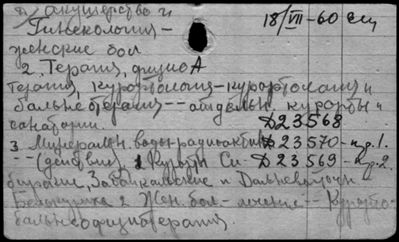 Акушерство и 18/VIII-60 Сщ
Гинекология -
женские бол
2. Терапия, физио А
терапия, курортология - курортология и
бальнеотерапия -- отдельн. курорты и
санатории. Д23568
3 Минеральн. воды радиоактивн Д23570 - пр. 1.
-- (действия) 2 Курорты Си- Д23569 - пр. 2.
бирские, Забайкальские и Дальневосточн
Белокуриха 2 Жен. бол - лечение -- Курорто-
бальнеофизиотерапия.